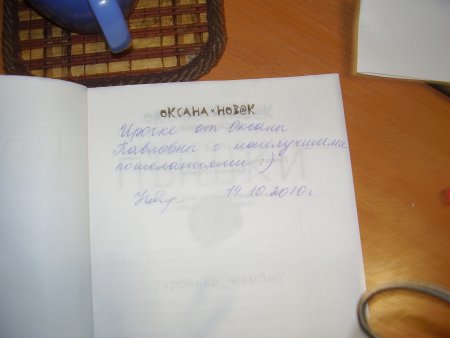 ОКСАНА НОВ@К
Ирочке от Оксаны
Павловны с наилучшими
пожеланиями :)
14.10.2010г.